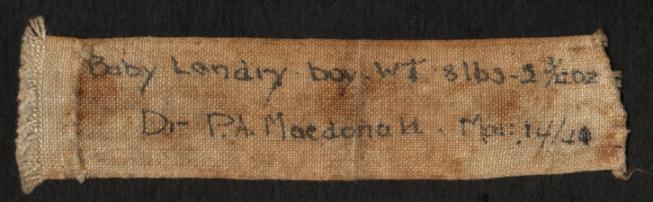 Baby Landry - boy - WT - 8 lbs - 5 ½ oz
Dr P.A. Macdonald. Mar: 14/40